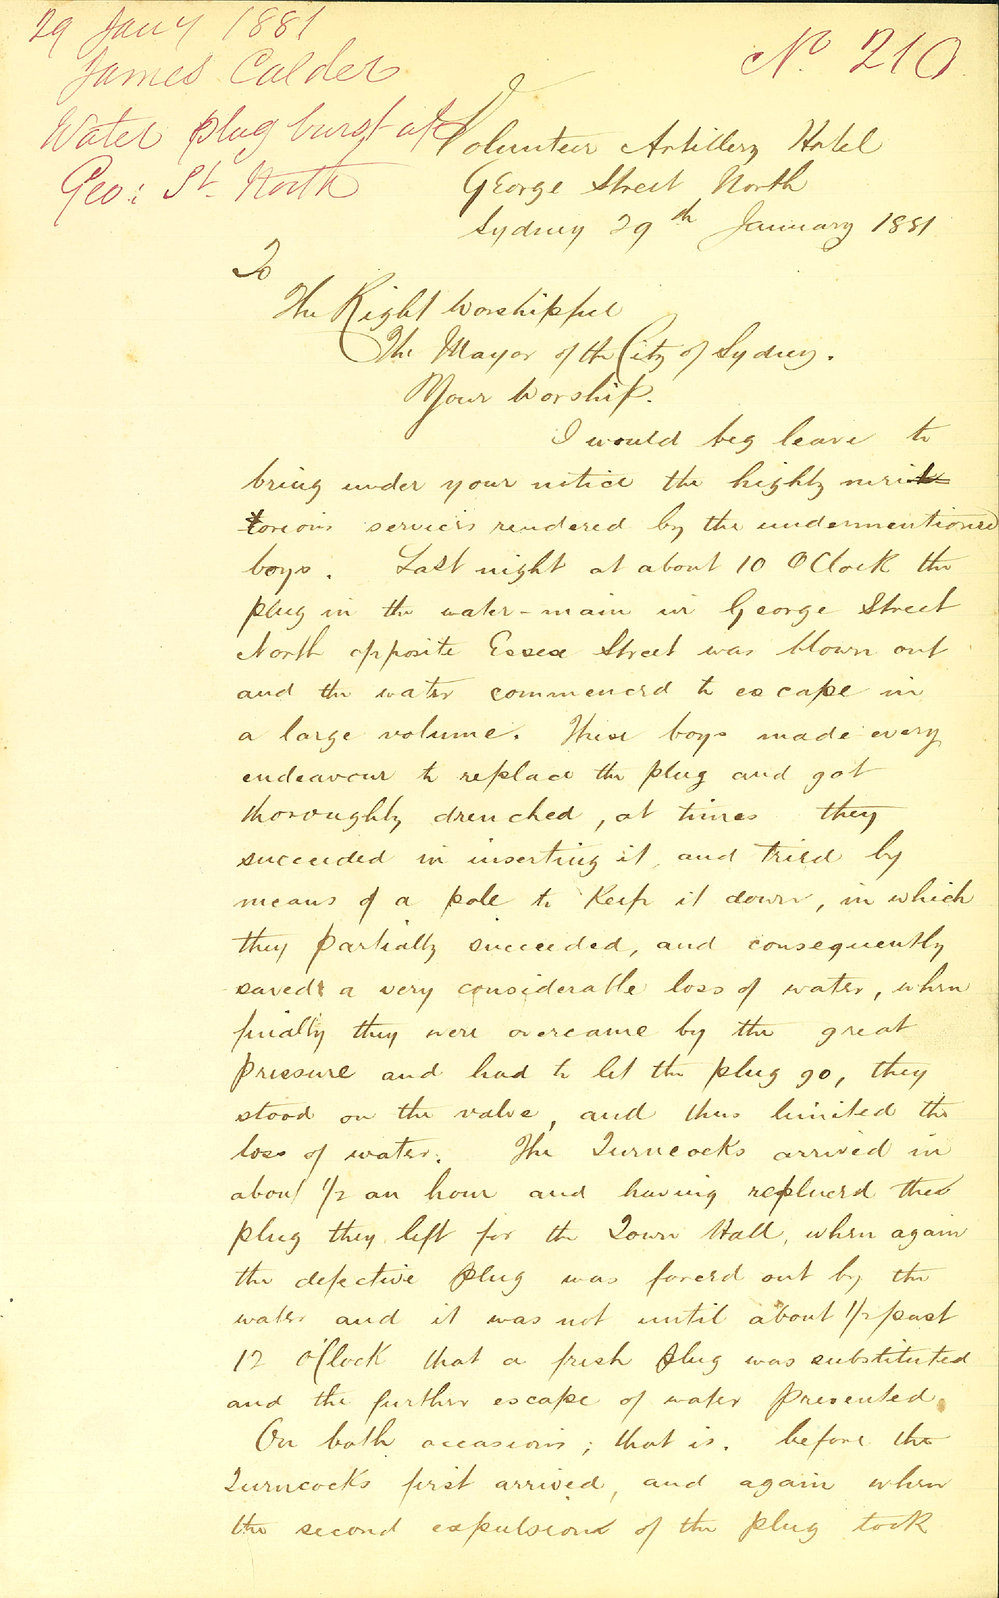 29 Jany 1881
James Calder
Water plug burst at
Geo: St. North
No 210
Volunteer Artillery Hotel
George Street North
Sydney 29th January 1881
To
The Right Worshipful
The Mayor of the City of Sydney.
Your Worship.
I would beg leave to
bring under your notice the highly meri
torious services rendered by the undermentioned
boys. Last night at about 10 OClock the
plug in the water-main in George Street
North opposite Essex Street was blown out
and the water commenced to escape in
a large volume. These boys made every
endeavour to replace the plug and got
thoroughly drenched, at times they
succeeded in inserting it, and tried by
means of a pole to keep it down, in which
they partially succeeded, and consequently
saved a very considerable loss of water, when
finally they were overcame by the great
pressure and had to let the plug go, they
stood on the valve, and thus limited the
loss of water. The Turncocks arrived in
about 1/2 an hour and having replaced the
plug they left for the Town Hall, when again
the defective plug was forced out by the
water and it was not until about 1/2 past
12 O'Clock that a fresh plug was substituted
and the further escape of water prevented.
On both occasions; that is. before the
Turncocks first arrived, and again when
the second expulsion of the plug took